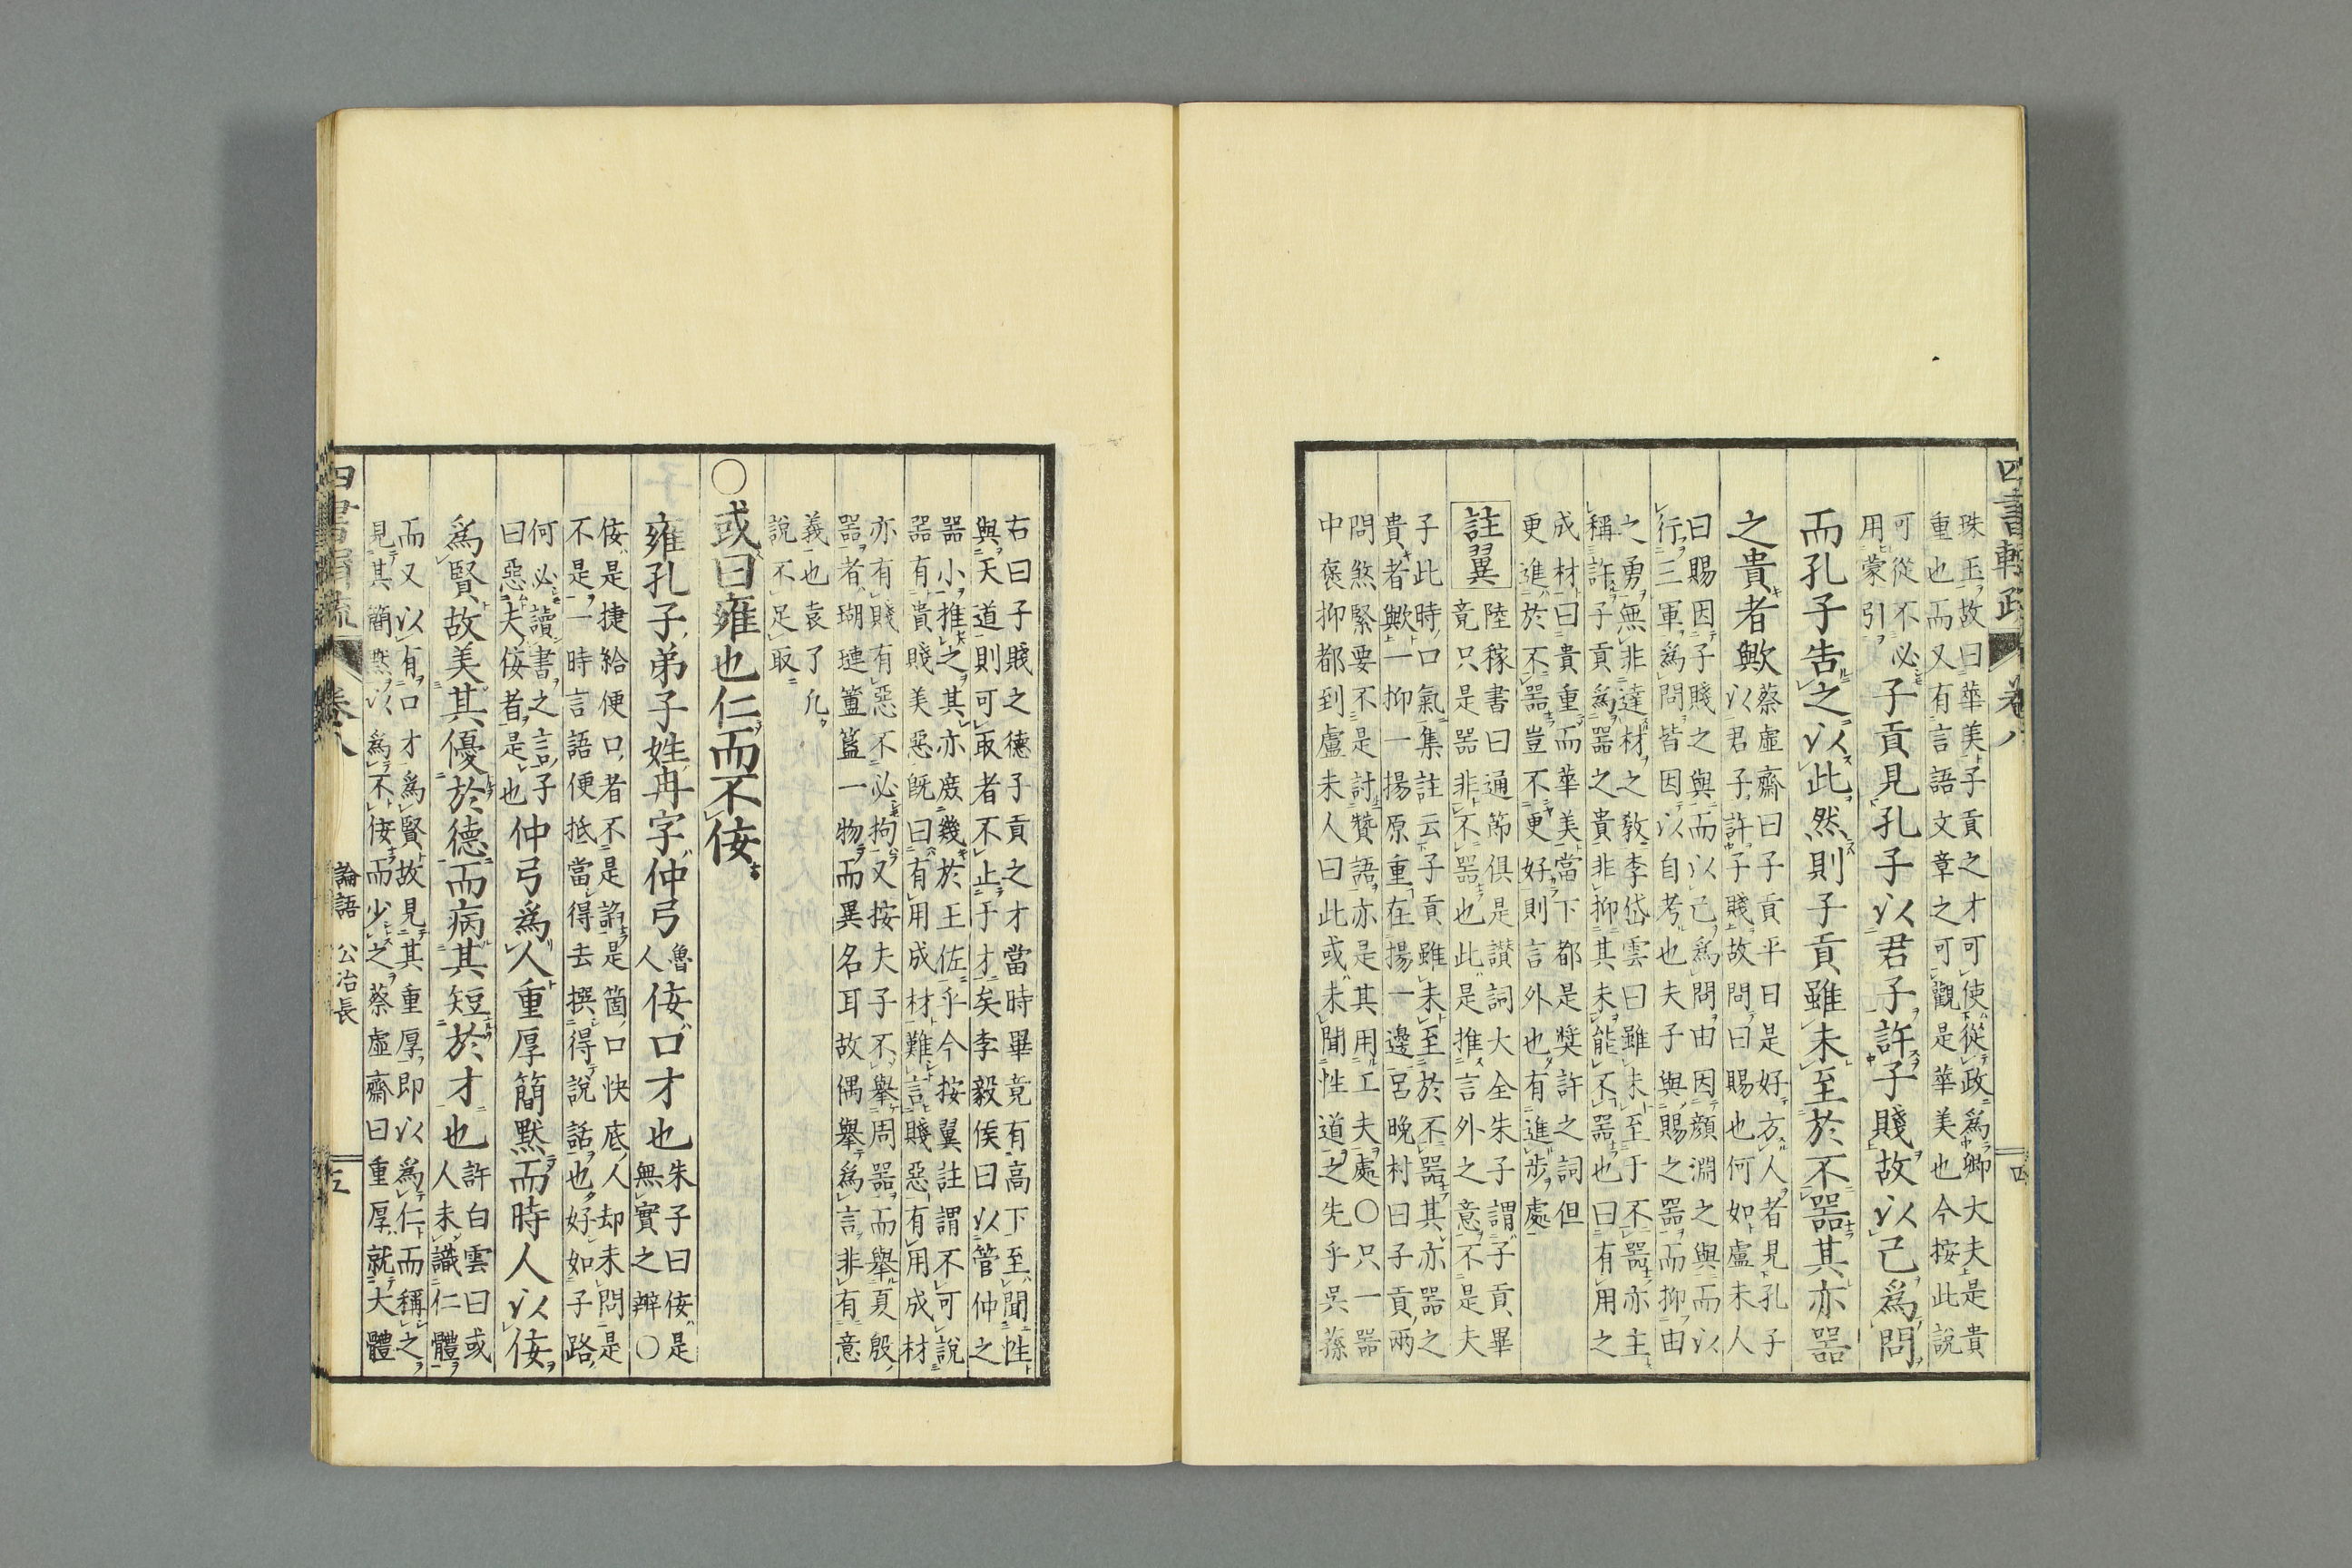 四書輯疏 卷八 四
珠玉故曰華美子貢之才可使從政爲卿大夫是貴
重也而又有言語文章之可觀是華美也今按此說
可從不必
用蒙引
子貢見孔子以君子許子賤故以己爲問
而孔子告之以此然則子貢雖未至於不器其亦器
之貴者歟
蔡虛齋曰子貢平日是好方人者見孔子
以君子許子賤故問曰賜也何如盧未人
曰賜因子賤之與而以己爲問由因顏淵之與而以
行三軍爲問皆因以自考也夫子與賜之器而抑由
之勇無非達材之敎李岱雲曰雖未至于不器亦主
稱許子貢爲器之貴非抑其未能不器也曰有用之
成材曰貴重而華美當下都是奬許之詞但
更進於不器豈不更好則言外也有進步處
註翼
陸稼書曰通節俱是讃詞大全朱子謂子貢畢
竟只是器非不器也此是推言外之意不是夫
子此時口氣集註云子貢雖未至於不器其亦器之
貴者歟一抑一揚原重在揚一邊呂晚村曰子貢兩
問煞緊要不是討贊語亦是其用工夫處○只一器
中褒抑都到盧未人曰此或未聞性道之先乎吳蓀
右曰子賤之德子貢之才當時畢竟有高下至聞性
與天道則可取者不止于才矣李毅侯曰以管仲之
器小推之其亦庶幾於王佐乎今按翼註謂不可說
器有貴賤美惡旣曰有用成材難言賤惡有用成材
亦有賤有惡不必拘又按夫子不舉周器而舉夏殷
器者瑚璉簠簋一物而異名耳故偶舉爲言非有意
義也袁了凡
說不足取
○或曰雍也仁而不佞
雍孔子弟子姓冉字仲弓
魯
人
佞口才也
朱子曰佞是
無實之辨○
佞是捷給便口者不是諂是箇口快底人却未問是
不是一時言語便抵當得去撰得說話也好如子路
何必讀書之言子
曰惡夫佞者是也
仲弓爲人重厚簡默而時人以佞
爲賢故美其優於德而病其短於才也
許白雲曰或
人未識仁體
而又以有口才爲賢故見其重厚即以爲仁而稱之
見其簡默以爲不佞而少之蔡虛齋曰重厚就大體
四書輯疏 卷八 論語 公冶長 五